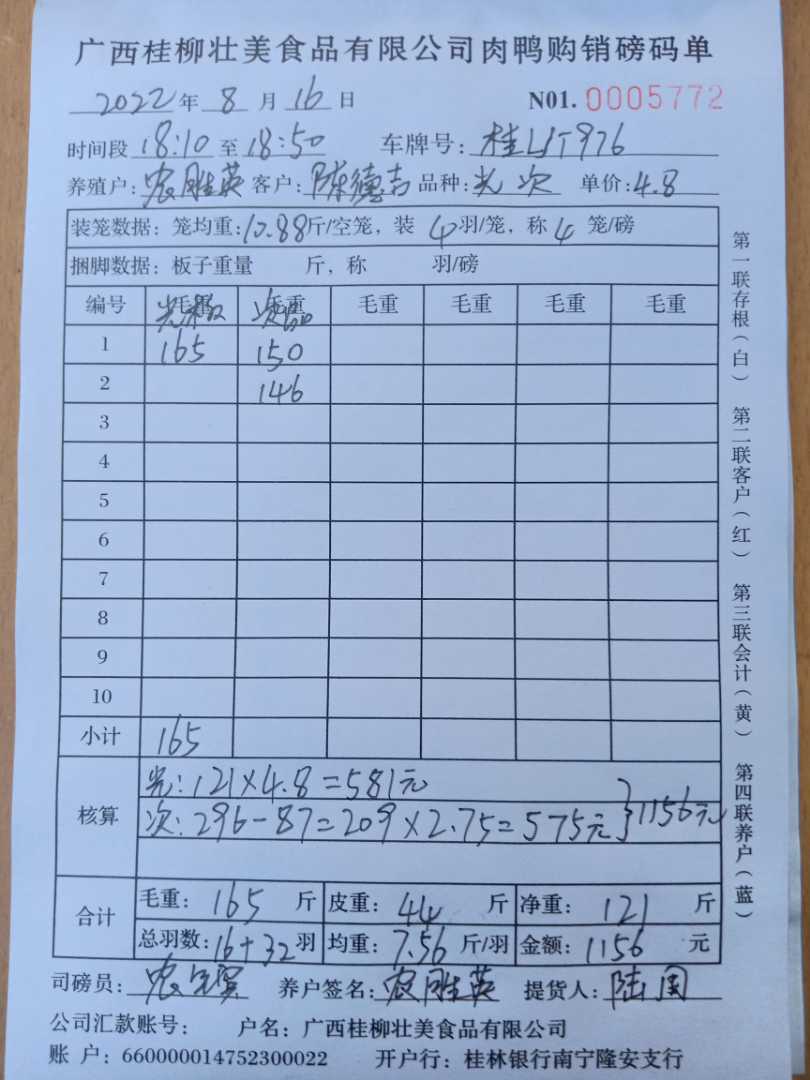 广西桂柳壮美食品有限公司肉鸭购销磅码单
2022年8月16日 N01.0005772
时间段18:10至18:50 车牌号:桂
养殖户:农胜英 客户:陈德吉 品种:光 次 单价:4.8
装笼数据:笼均重:10.88斤/空笼,装4羽/笼,称4笼/磅
捆脚数据:板子重量 斤,称 羽/磅
编号 毛重 毛重 毛重 毛重 毛重 毛重
次品
1 165 150
2 146
3
4
5
6
7
8
9
10
小计 165
光:121×4.8=581元
核算 次:296-87=209×2.75=575元 }1156元
合计 毛重:165斤 皮重:44斤 净重:121斤
总羽数:16+32羽 均重:7.56斤/羽 金额:1156元
司磅员:农 养户签名:农胜英 提货人:陆
公司汇款账号: 户名:广西桂柳壮美食品有限公司
账 户:660000014752300022 开户行:桂林银行南宁隆安支行
第一联存根(白) 第二联客户(红) 第三联会计(黄) 第四联养户(蓝)